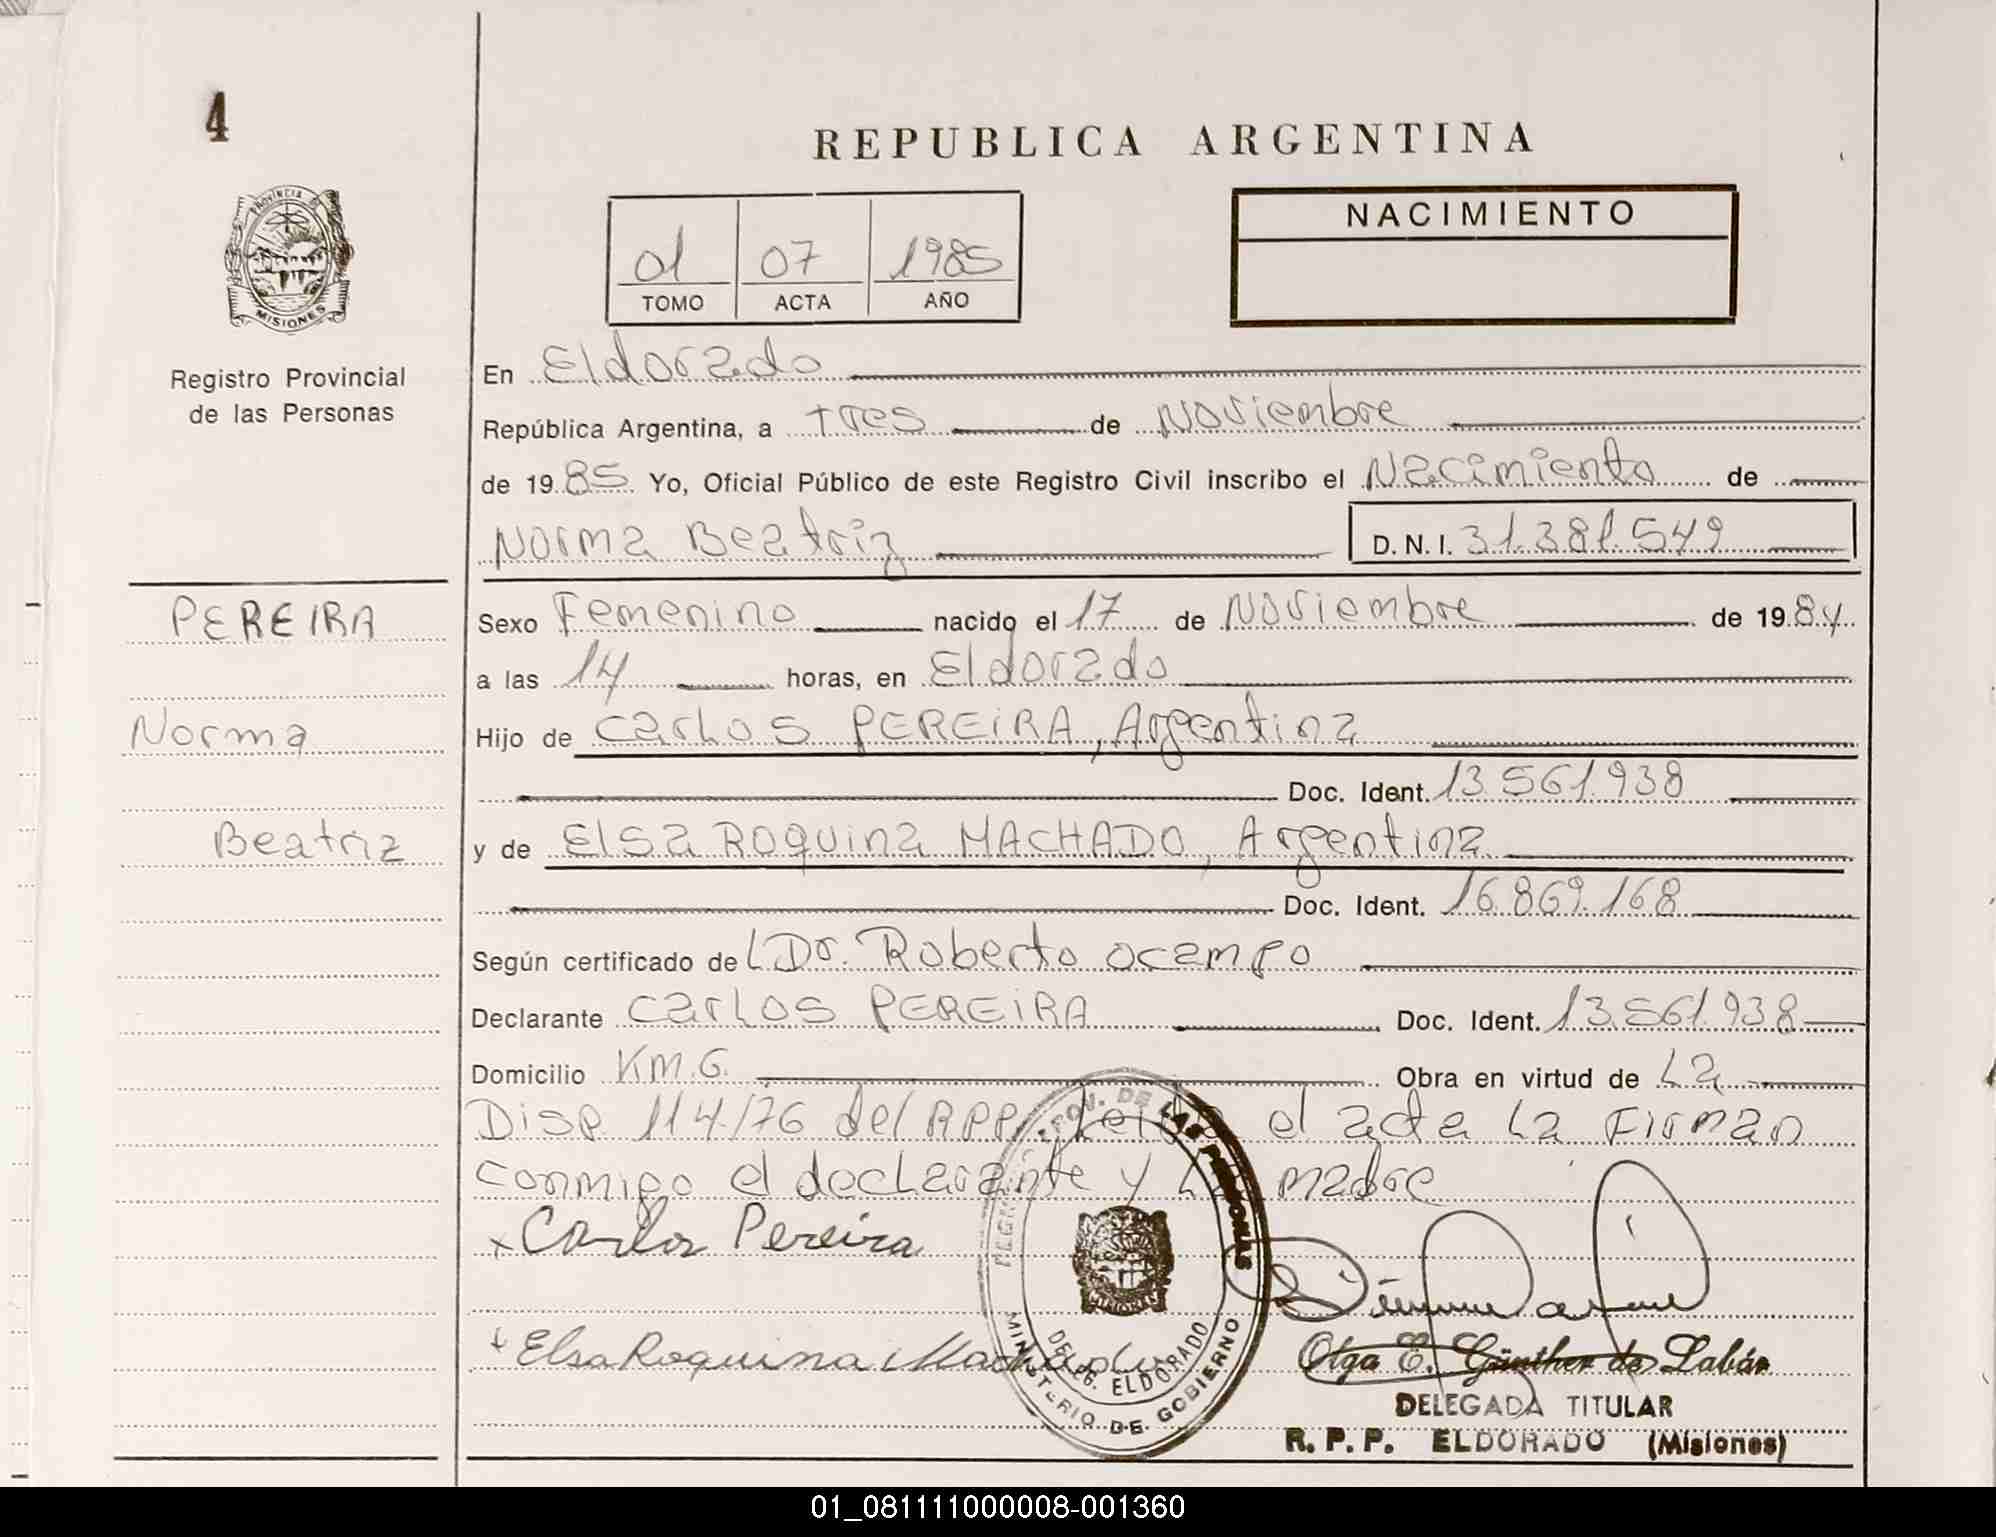 4
REPUBLICA ARGENTINA
PROVINCIA D
MISIONES
Registro Provincial
de las Personas
01 07 1985
TOMO ACTA AÑO
NACIMIENTO
En Eldorado
República Argentina, a tres de Noviembre
de 1985 Yo, Oficial Público de este Registro Civil inscribo el Nacimiento de
Norma Beatriz D. N. I. 31.381.549
PEREIRA
Norma
Beatriz
Sexo Femenino nacido el 17 de Noviembre de 1984
a las 14 horas, en Eldorado
Hijo de Carlos PEREIRA, Argentina
Doc. Ident. 13.561.938
y de Elsa Roquina MACHADO, Argentina
Doc. Ident. 16.869.168
Según certificado de L Dr. Roberto Ocampo
Declarante Carlos PEREIRA Doc. Ident. 13.561.938
Domicilio KM.6. Obra en virtud de La
Disp. 114/76 del RPP. Leida el acta la Firman
conmigo el declarante y La madre
x Carlos Pereira
x Elsa Roquina Machado
PROV. DE LAS PERSONAS
MISIONES
DELEG. ELDORADO
MINISTERIO DE GOBIERNO
Olga E. Günther de Labár
DELEGADA TITULAR
R. P. P. ELDORADO (Misiones)
01_081111000008-001360